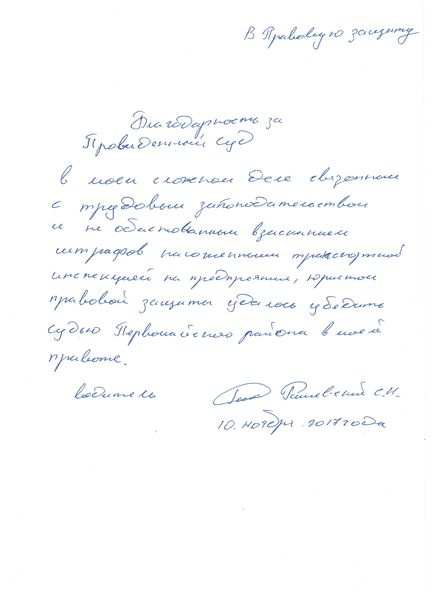 В Правовую защиту
Благодарность за
Провиденный суд
в моем сложном деле связонным
с трудовым законодательством
и не обастованным взысканием
штрафов наложенными транспортной
инспекцией на предпреятия, юристом
правовой защиты удалось убедить
судью Первомайского района в моей
правоте.
водитель С.Н.
10. ноября 2017 года